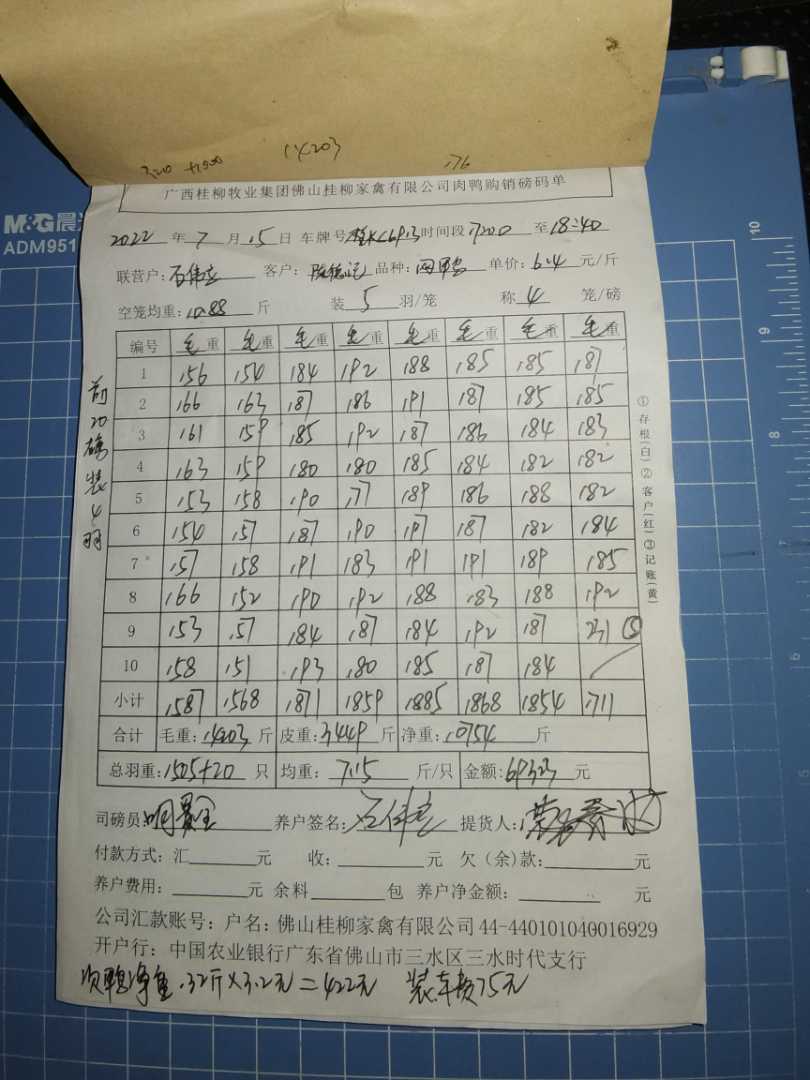 320 +1500 14203 176
M&G晨
ADM951
广西桂柳牧业集团佛山桂柳家禽有限公司肉鸭购销磅码单
2022年7月15日 车牌号 时间段 1720 0 至 18:40
联营户: 客户: 品种: 单价:6.4元/斤
空笼均重:10.88斤 装5羽/笼 称4笼/磅
编号 毛重 毛重 毛重 毛重 毛重 毛重 毛重 毛重
1 156 154 184 192 188 185 185 187
2 166 163 187 186 191 187 185 185
3 161 159 185 192 187 186 184 183
4 163 159 180 180 185 184 182 182
5 153 158 190 177 189 186 188 182
6 154 157 187 190 197 187 182 184
7 157 158 191 183 191 191 189 185
8 166 152 190 192 188 183 188 192
9 153 157 184 187 184 192 187 231 ⑤
10 158 151 193 180 185 187 184
小计 1587 1568 1871 1859 1885 1868 1854 1711
合计 毛重:14203斤 皮重:3449斤 净重:10754斤
总羽重:1505+20只 均重:7.15斤/只 金额:69323元
前20磅装4羽
①存根(白)②客户(红)③记账(黄)
司磅员: 养户签名: 提货人:
付款方式:汇 元 收: 元 欠(余)款: 元
养户费用: 元 余料 包 养户净金额: 元
公司汇款账号:户名:佛山桂柳家禽有限公司44-440101040016929
开户行:中国农业银行广东省佛山市三水区三水时代支行
次鸭净重132斤×3.2元=422元 装车费75元
10
9
8
6